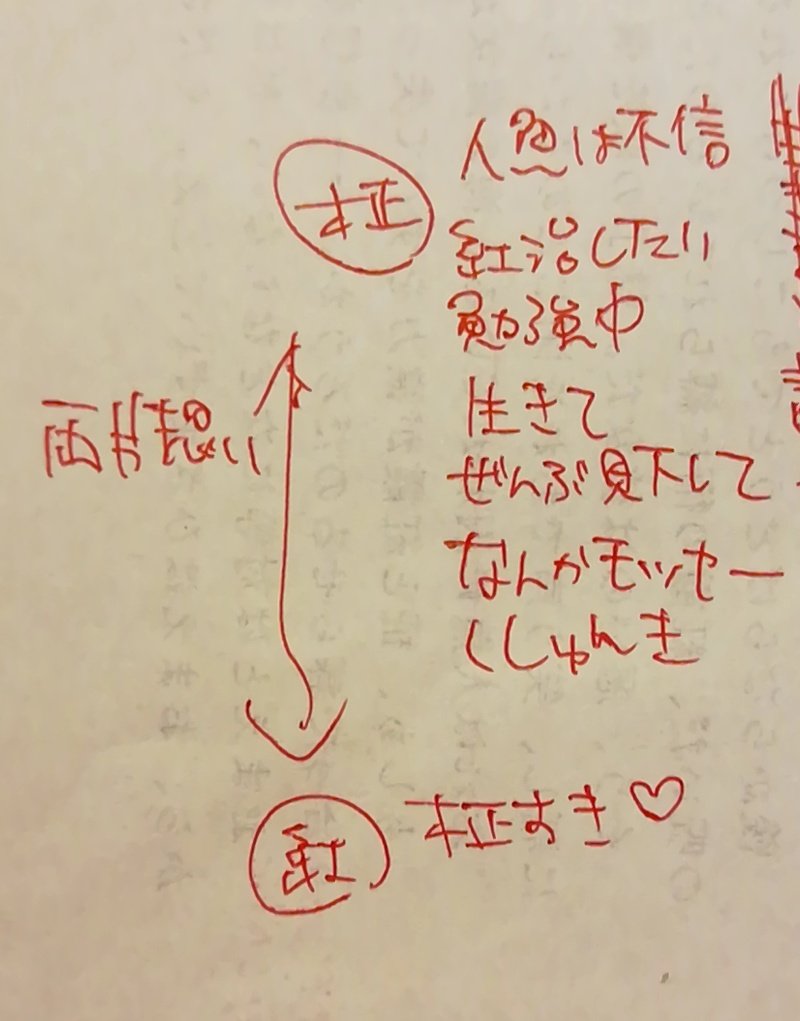 柾
人魚は不信
紅治したい
勉強中
生きて
ぜんぶ見下して
なんかモッセー
ししゅんき
両片想い
紅
柾すき♡